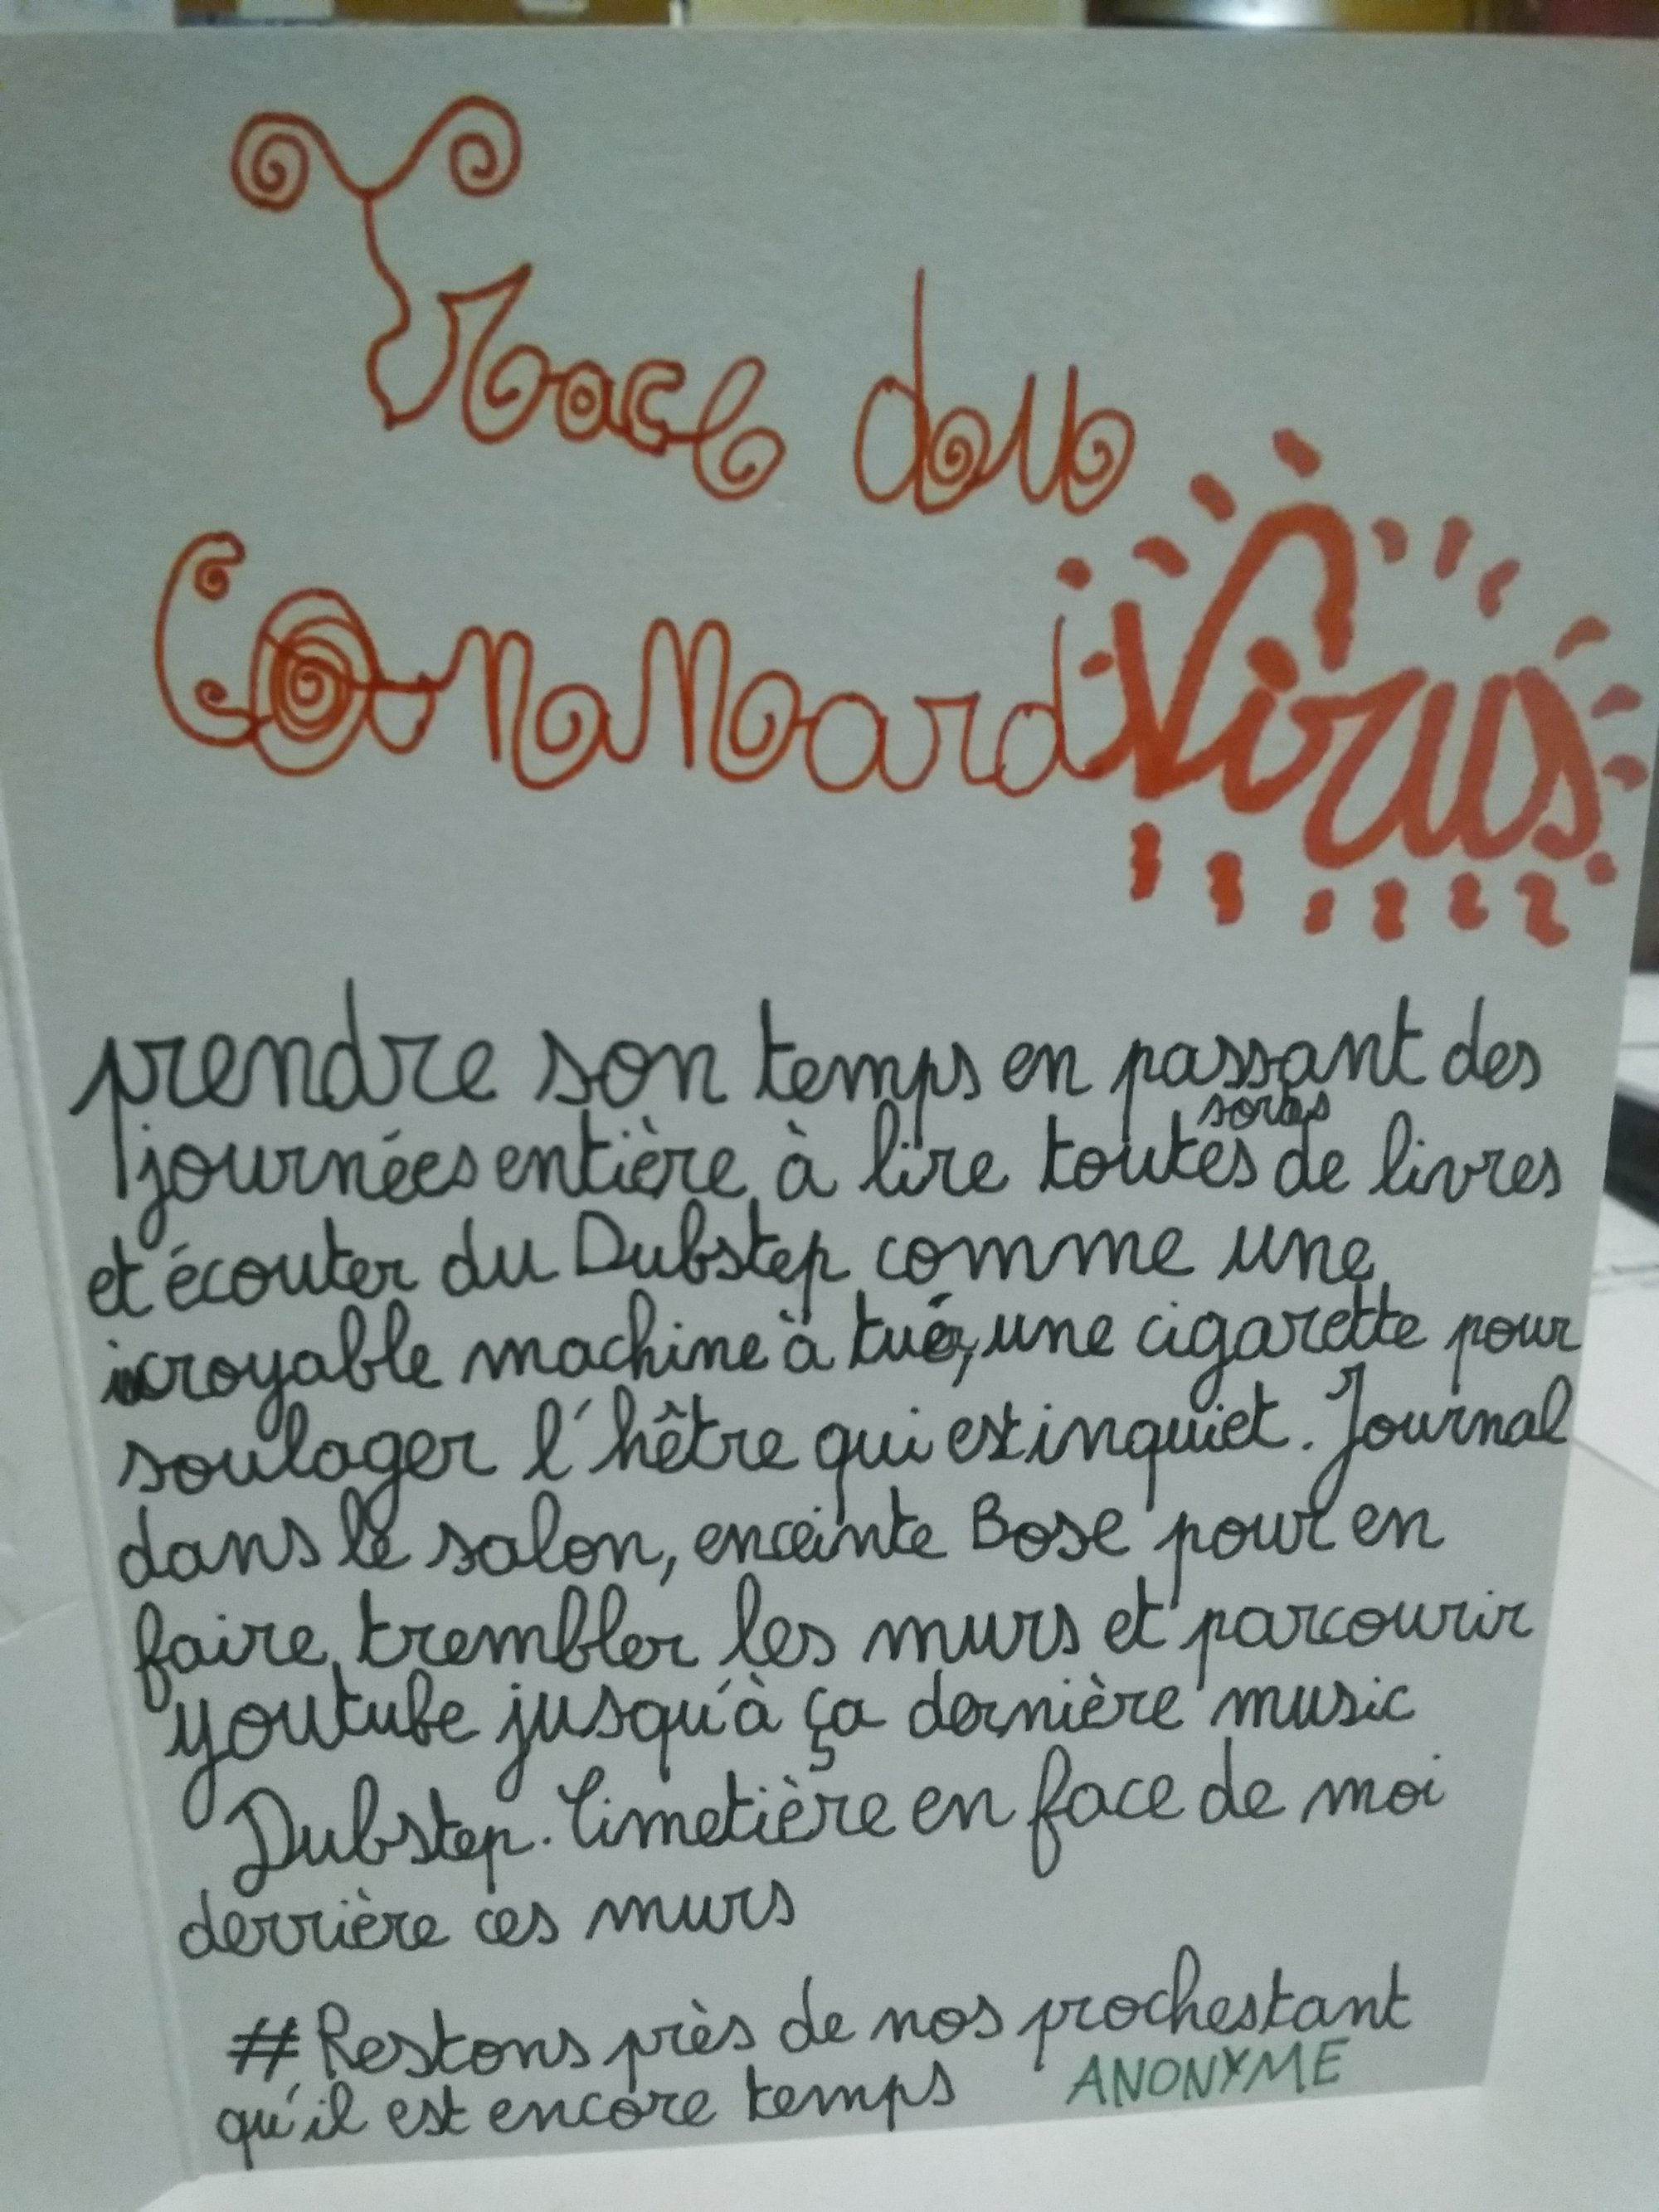 Trace dou
ConnardVirus
prendre son temps en passant des
journées entière à lire toutes sortes de livres
et écouter du Dubstep comme une
icroyable machine à tué, une cigarette pour
soulager l'hêtre qui est inquiet. Journal
dans le salon, enceinte Bose pour en
faire trembler les murs et parcourir
youtube jusqu'à ça dernière music
Dubstep. Cimetière en face de moi
derrière ces murs
#Restons près de nos prochestant
qu'il est encore temps ANONYME